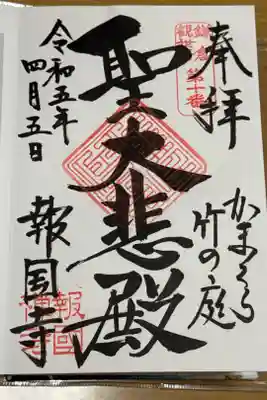 奉拝
かまくら
竹の庭
鎌倉 第十番
観世
聖大悲殿
令和五年
四月五日
報国寺
報國